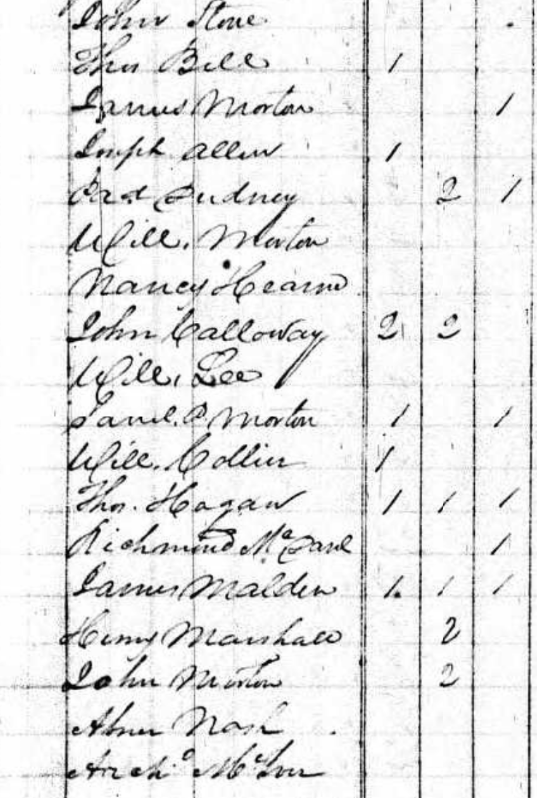 John Stone
Thos Bell 1
James Morton 1
Joseph Allen 1
Pat 2 1
Will. Morton
Nancy Hearne
John Calloway 2 2
Will. Lee
Saml. P. Morton 1 1
Will. Collier 1
Thos. Hagan 1 1 1
Richmond 1
James Malden 1 1 1
Henry Marshall 2
John Morton 2
Abner Nash
Archd